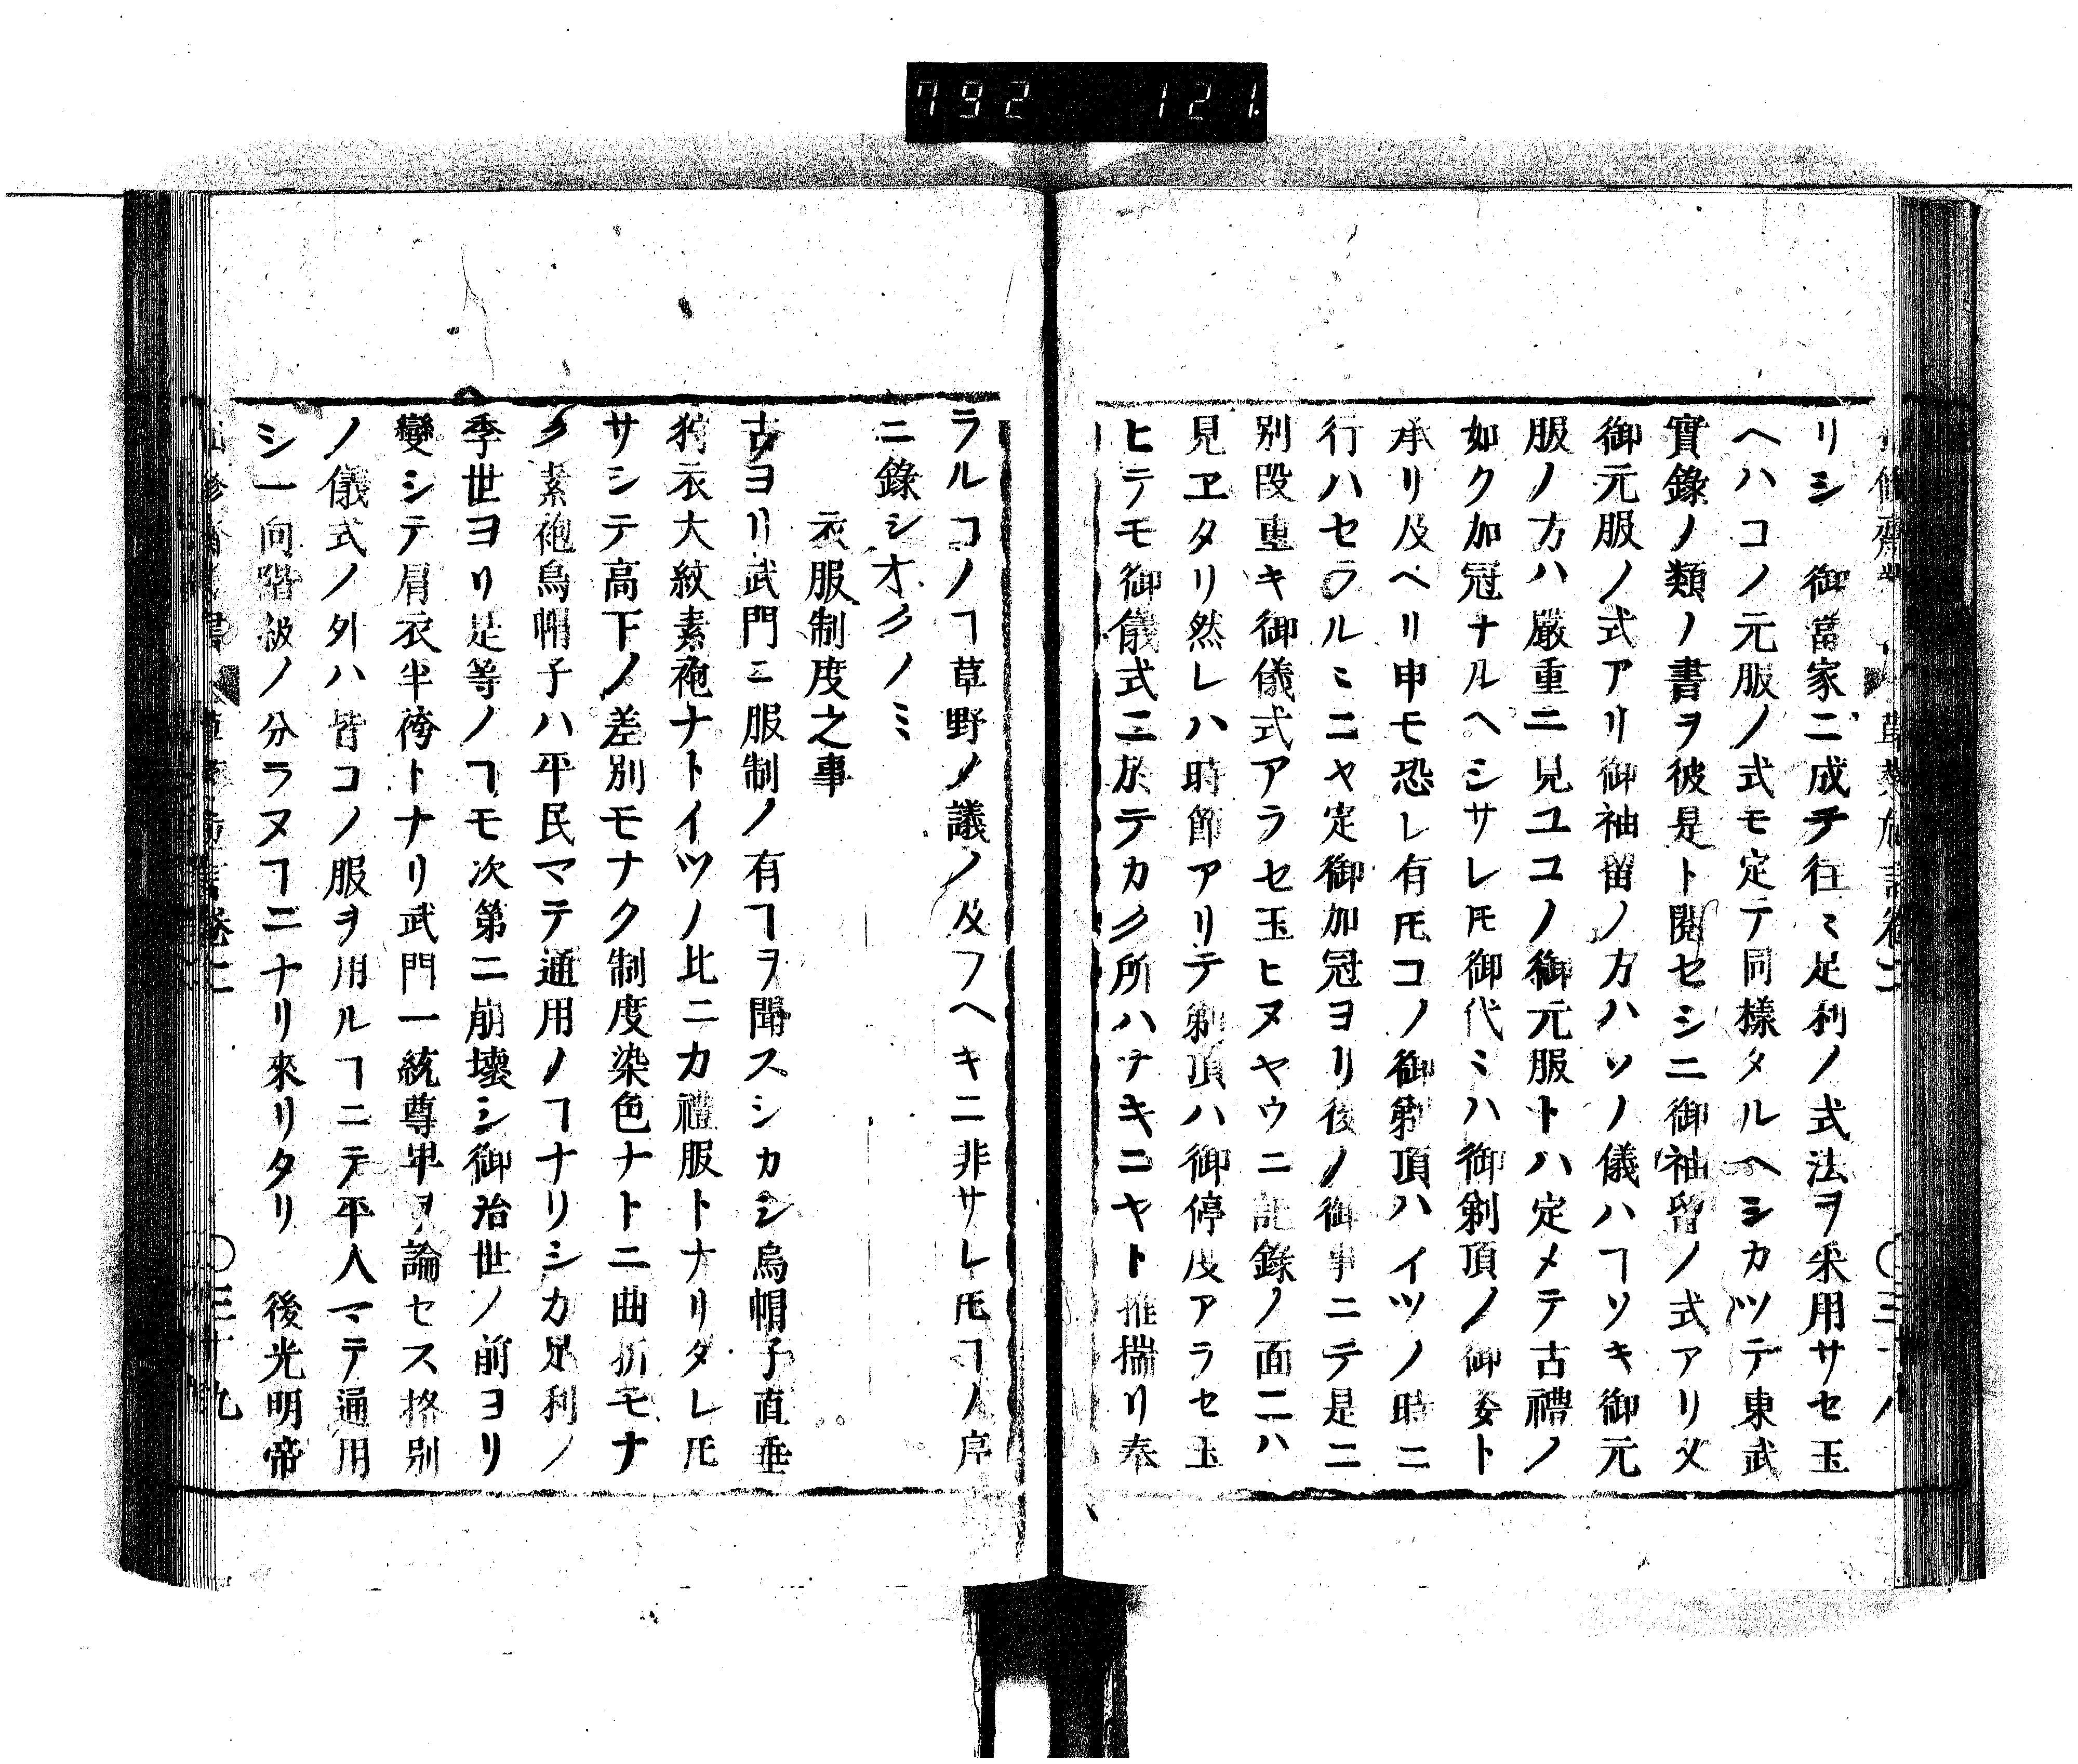 792 121
リシ 御當家ニ成テ往ミ足利ノ式法ヲ采用サセ玉
ヘハコノ元服ノ式モ定テ同樣タルヘシカツテ東武
實錄ノ類ノ書ヲ彼是ト閲セシニ御袖留ノ式アリ又
御元服ノ式アリ御袖留ノ方ハソノ儀ハヿソキ御元
服ノ方ハ嚴重ニ見ユコノ御元服トハ定メテ古禮ノ
如ク加冠ナルヘシサレ𪜈御代ミハ御剃頂ノ御委ト
承リ及ヘリ申モ恐レ有𪜈コノ御剃頂ハイツノ時ニ
行ハセラルミニヤ定御加冠ヨリ後ノ御事ニテ是ニ
別段重キ御儀式アラセ玉ヒヌヤウニ記錄ノ面ニハ
見ヱタリ然レハ時節アリテ剃頂ハ御停廢アラセ玉
ヒテモ御儀式ニ於テカク所ハナキニヤト推揣リ奉
ラルコノヿ草野ノ議ノ及フヘキニ非サレ𪜈ヿノ序
ニ錄シオクノミ
衣服制度之事
古ヨリ武門ニ服制ノ有ヿヲ聞スシカシ烏帽子直垂
狩衣大紋素袍ナトイツノ比ニカ禮服トナリタレ𪜈
サシテ高下ノ差別モナク制度染色ナトニ曲折モナ
ク素袍烏帽子ハ平民マテ通用ノヿナリシカ足利ノ
季世ヨリ是等ノヿモ次第ニ崩壞シ御治世ノ前ヨリ
變シテ肩衣半袴トナリ武門一統尊卑ヲ論セス格別
ノ儀式ノ外ハ皆コノ服ヲ用ルヿニテ平人マテ通用
シ一向階級ノ分ラヌヿニナリ來リタリ 後光明帝